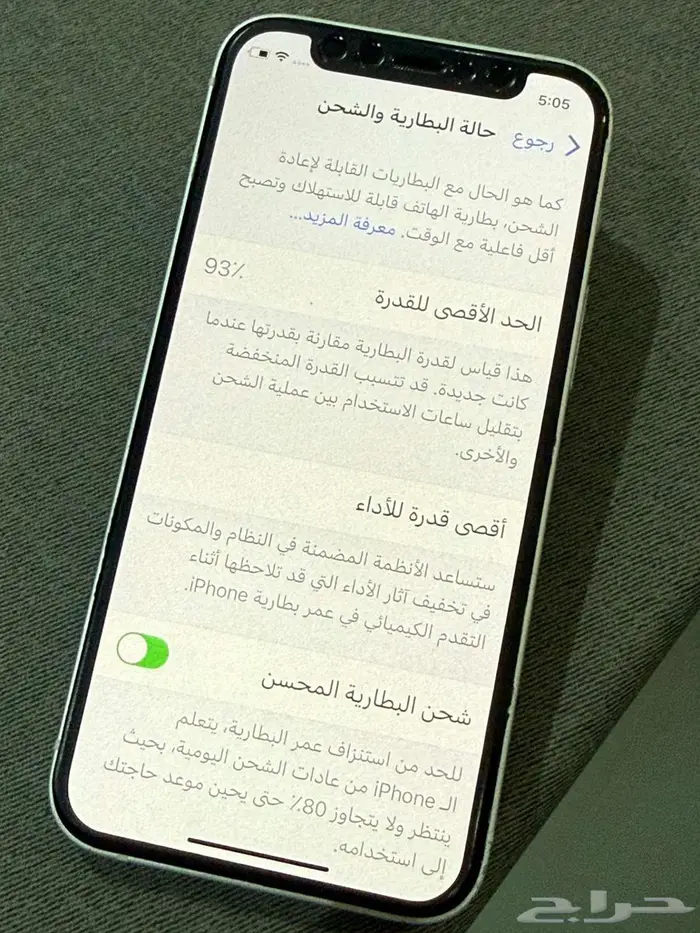 5:05
رجوع
حالة البطارية والشحن
كما هو الحال مع البطاريات القابلة لإعادة
الشحن، بطارية الهاتف قابلة للاستهلاك وتصبح
أقل فاعلية مع الوقت. معرفة المزيد...
الحد الأقصى للقدرة 93٪
هذا قياس لقدرة البطارية مقارنة بقدرتها عندما
كانت جديدة. قد تتسبب القدرة المنخفضة
بتقليل ساعات الاستخدام بين عملية الشحن
والأخرى.
أقصى قدرة للأداء
ستساعد الأنظمة المضمنة في النظام والمكونات
في تخفيف آثار الأداء التي قد تلاحظها أثناء
التقدم الكيميائي في عمر بطارية iPhone.
شحن البطارية المحسن
للحد من استنزاف عمر البطارية، يتعلم
الـ iPhone من عادات الشحن اليومية، بحيث
ينتظر ولا يتجاوز 80٪ حتى يحين موعد حاجتك
إلى استخدامه.
حراج